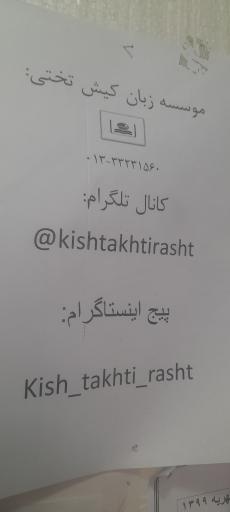 موسسه زبان کیش تختی:
۰۱۳-۳۳۲۳۱۵۶۰
کانال تلگرام:
@kishtakhtirasht
پیج اینستاگرام:
Kish_takhti_rasht
۱۳۹۹